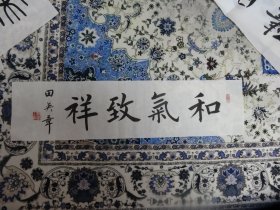 和氣致祥
田英章